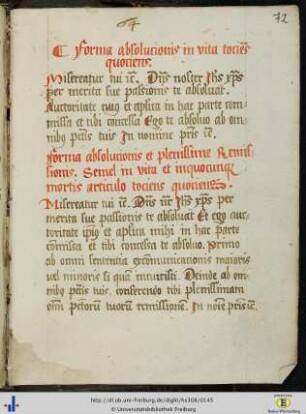 64
72
C forma absolucionis in vita tocie͂s
quociens.
Misereatur tui ic̄. Dn̄s noster Ih̄s xp̄s
per merita sue passionis te absoluat.
Auctoritate et aplica in hac parte com-
missa et tibi concessa Ego te absoluo ab om-
nibꝰ pctīs tuis In nomine pr̄is ic̄.
forma absolucionis et plenissime Remis-
sionis. Semel in vita et in quocunqꝫ
mortis articulo tociens quociens
Misereatur tui ic̄. Dn̄s nr̄ Ih̄s xp̄s per
merita sue passionis te absoluat Et ego auc-
toritate ip̄iꝰ et aplica mihi in hac parte
cōmissa et tibi concessa te absoluo. Primo
ab omni sententia excōmunicationis maioris
vel minoris si quā incurristi. Deinde ab om-
nibꝰ pctīs tuis. conferendo tibi plenissimam
om̄ pctorū tuorū remissionē. In noīe pris ic̄.
http://dl.ub.uni-freiburg.de/diglit/hs308/0145
© Universitätsbibliothek Freiburg
Baden-Württemberg